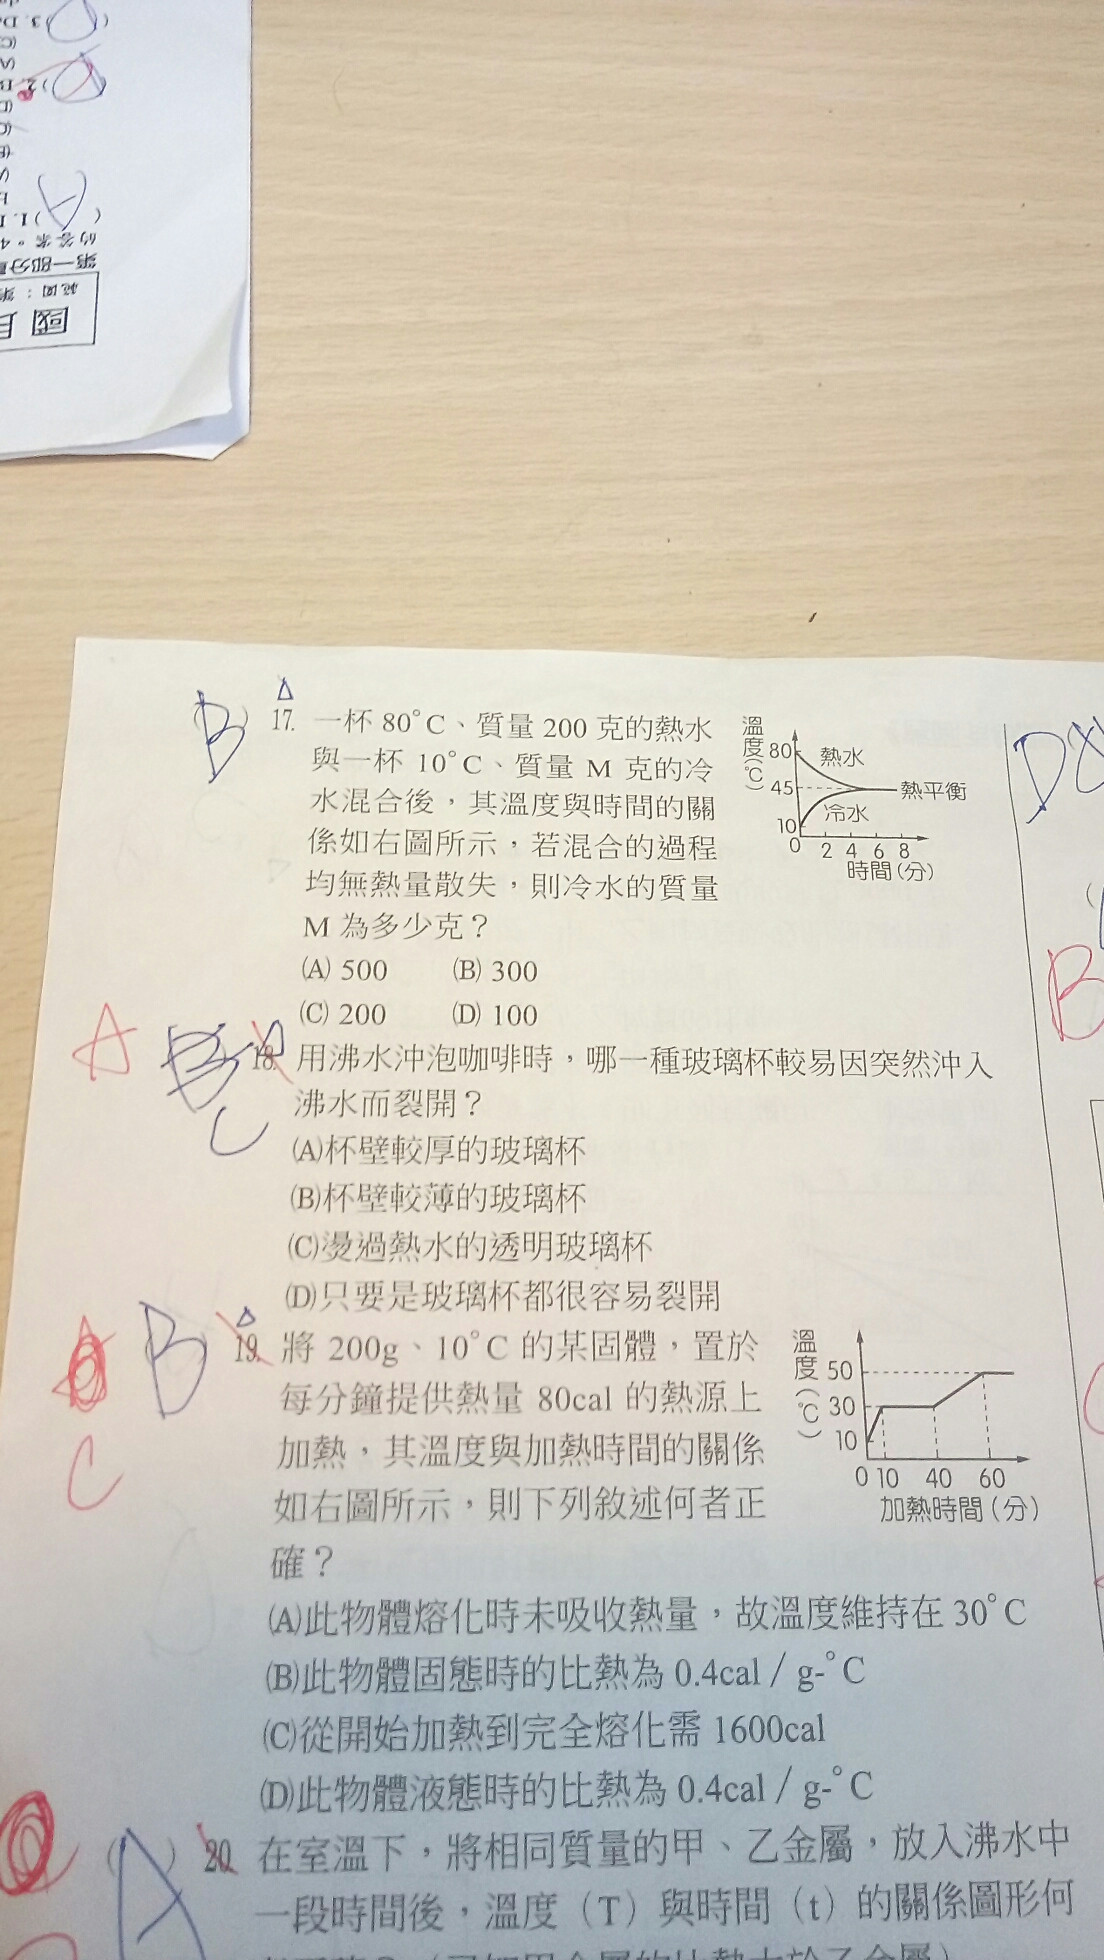 國
範圍：第
第一部分
的答案。4
A
1.
2.
3.
△
B
17. 一杯 80°C、質量 200 克的熱水
與一杯 10°C、質量 M 克的冷
水混合後，其溫度與時間的關
係如右圖所示，若混合的過程
均無熱量散失，則冷水的質量
M 為多少克？
(A) 500 (B) 300
(C) 200 (D) 100
溫度(°C)
80
45
10
熱水
冷水
熱平衡
0 2 4 6 8
時間(分)
A C
18. 用沸水沖泡咖啡時，哪一種玻璃杯較易因突然沖入
沸水而裂開？
(A)杯壁較厚的玻璃杯
(B)杯壁較薄的玻璃杯
(C)燙過熱水的透明玻璃杯
(D)只要是玻璃杯都很容易裂開
B △
C
19. 將 200g、10°C 的某固體，置於
每分鐘提供熱量 80cal 的熱源上
加熱，其溫度與加熱時間的關係
如右圖所示，則下列敘述何者正
確？
溫度(°C)
50
30
10
0 10 40 60
加熱時間(分)
(A)此物體熔化時未吸收熱量，故溫度維持在 30°C
(B)此物體固態時的比熱為 0.4cal / g-°C
(C)從開始加熱到完全熔化需 1600cal
(D)此物體液態時的比熱為 0.4cal / g-°C
A
20. 在室溫下，將相同質量的甲、乙金屬，放入沸水中
一段時間後，溫度（T）與時間（t）的關係圖形何
D
B